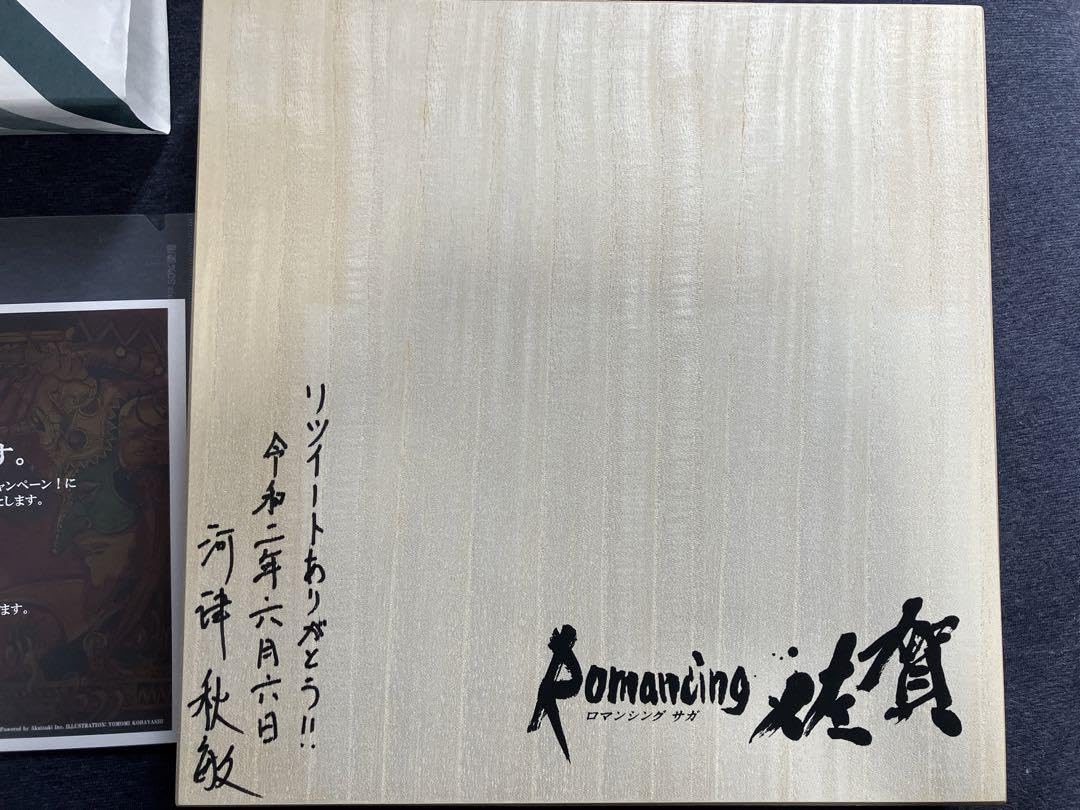 リツイートありがとう!!
令和二年六月六日
河津秋敏
Romancing 佐賀
ロマンシング サガ
す。
ャンペーン！に
たします。
ます。
Powered by Akatsuki Inc. ILLUSTRATION: TOMOMI KOBAYASHI